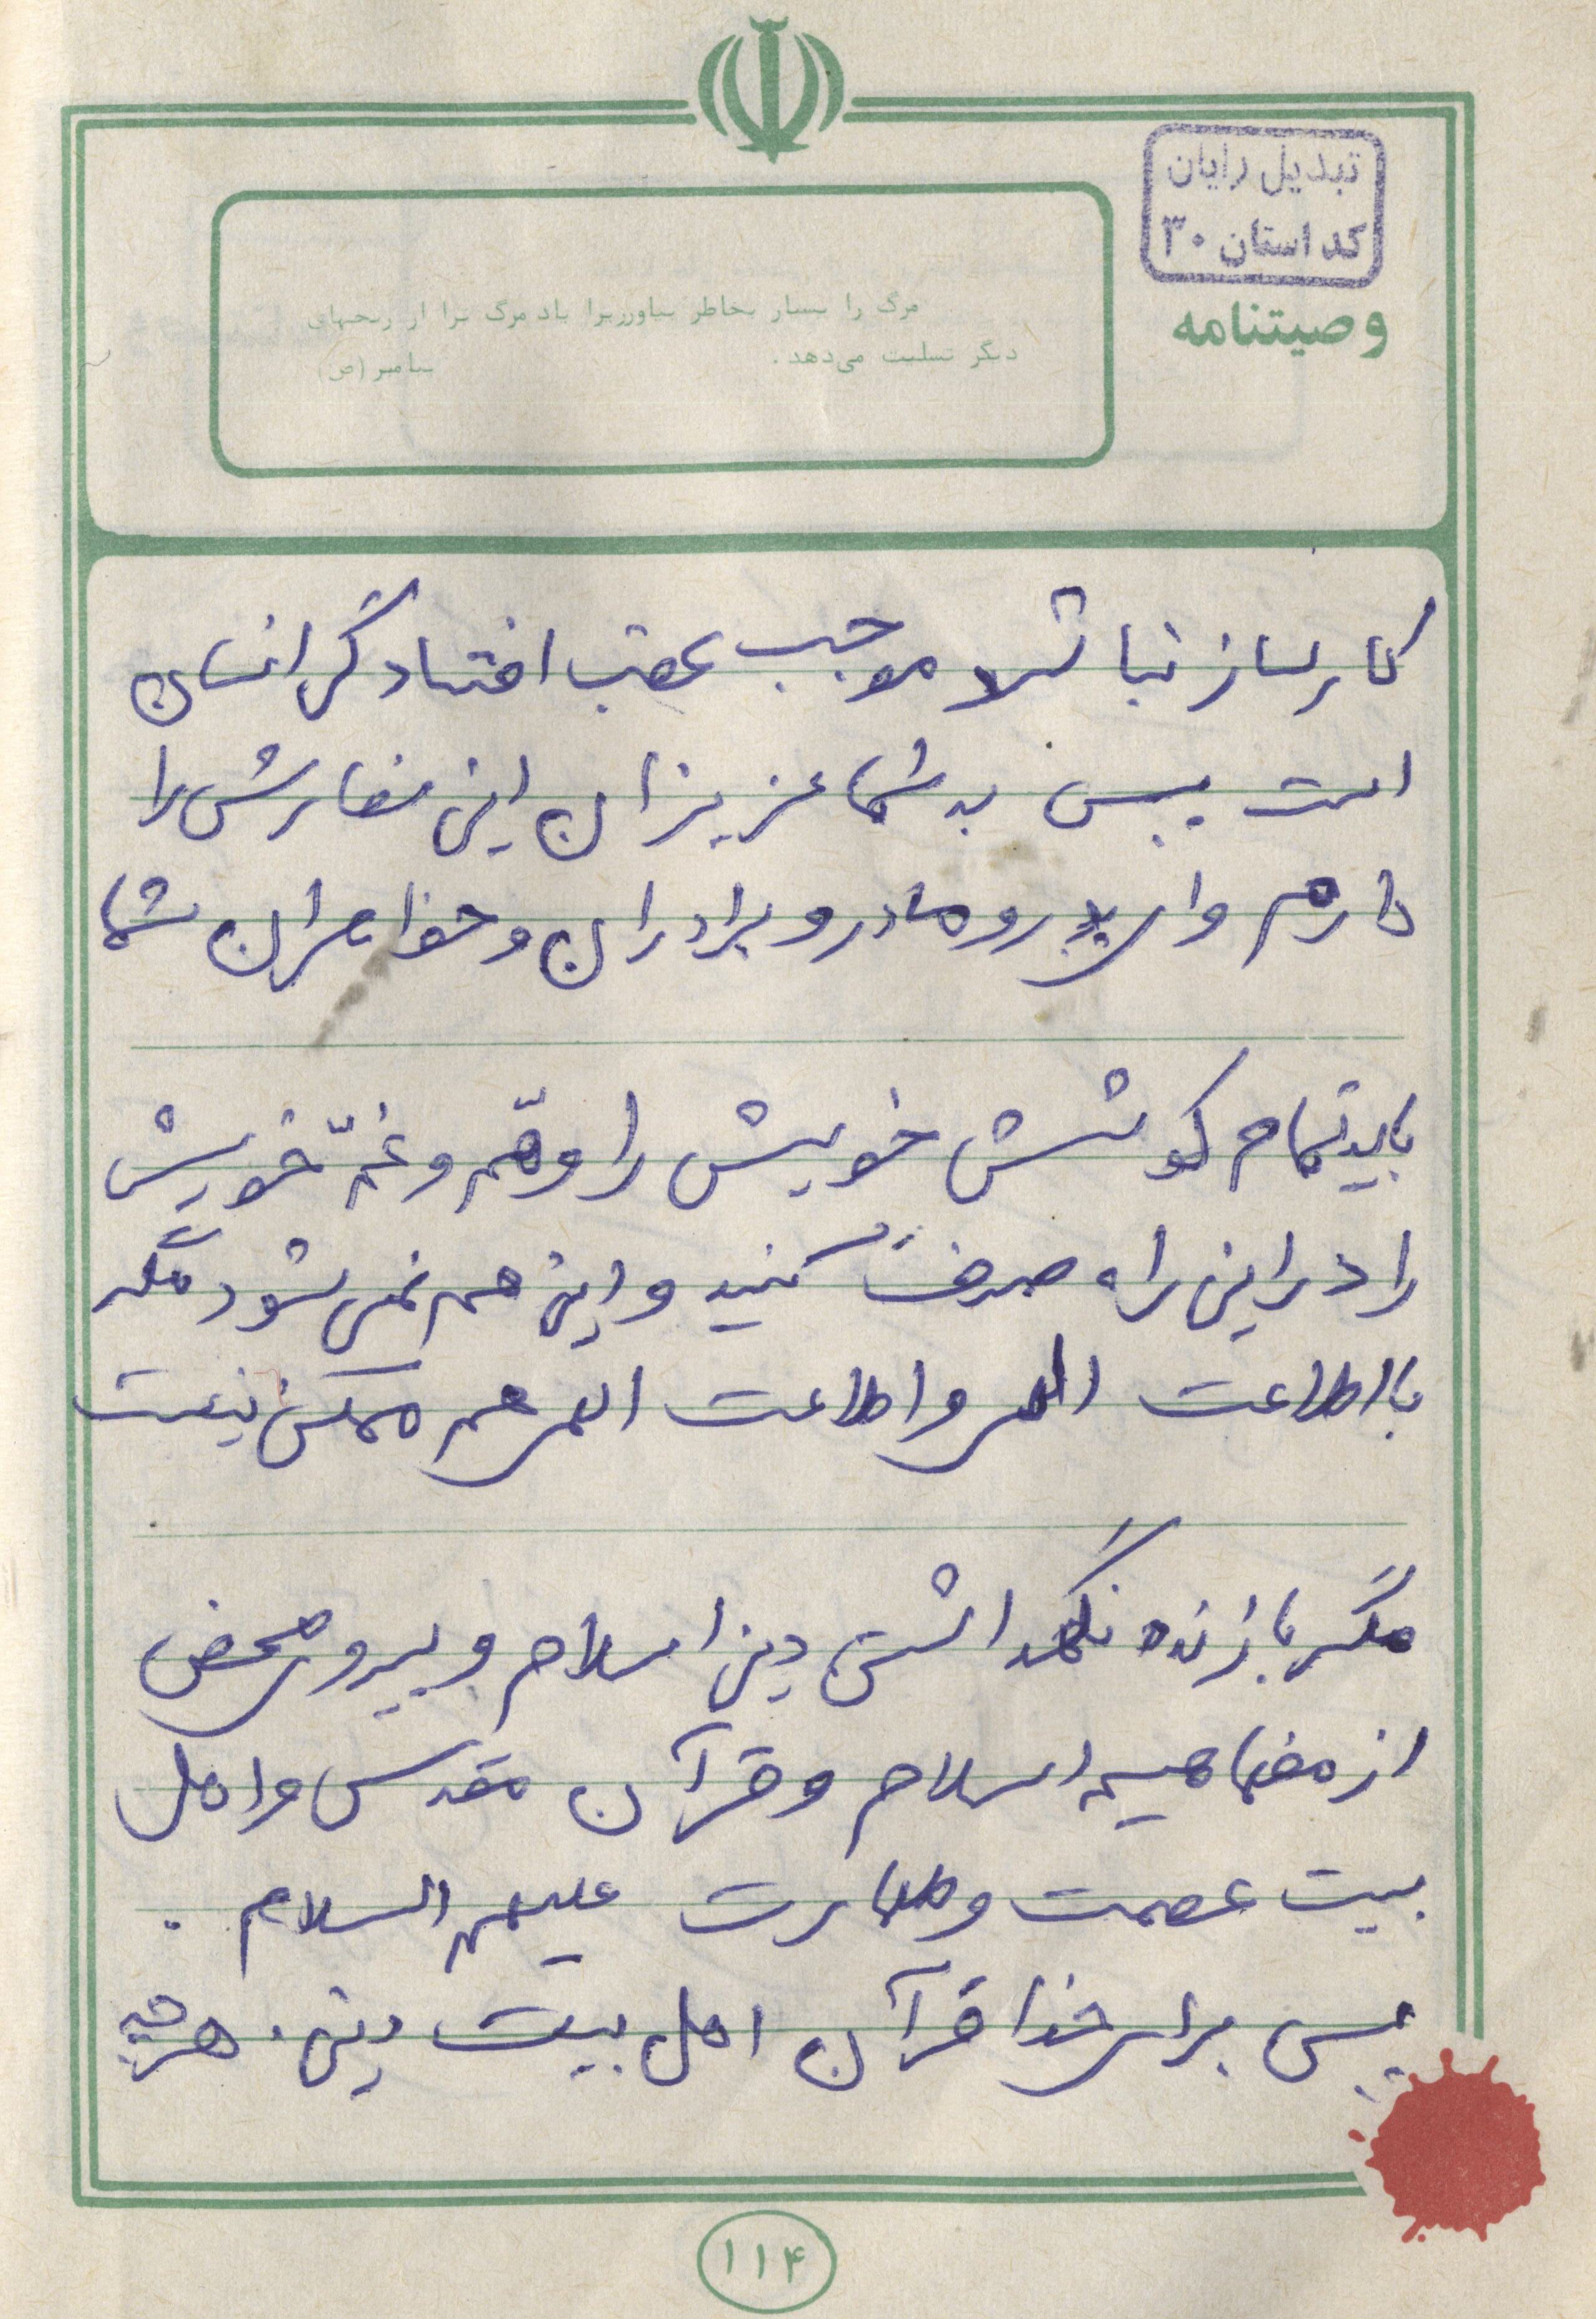 تبدیل رایان
کد استان ۳۰
وصیتنامه
مرگ را بسیار بخاطر بیاور زیرا یاد مرگ ترا از رنجهای
دیگر تسلیت می‌دهد. پیامبر (ص)
کار ساز نباشد موجب عقب افتادگی انسان
است پس به شما عزیزان این سفارش را
دارم و ای پدر و مادر و برادران و خواهران شما
باید تمام کوشش خویش را و همّ و غمّ خویش
را در این راه صرف کنید و این هم نمی شود مگر
با اطاعت الهی و اطاعت الهی هم ممکن نیست
مگر با زنده نگهداشتن دین اسلام و پیروی محض
از مفاهیم اسلام و قرآن مقدس و اهل
بیت عصمت و طهارت علیهم السلام .
پس برای خدا قرآن اهل بیت دین . هر چه
۱۱۴